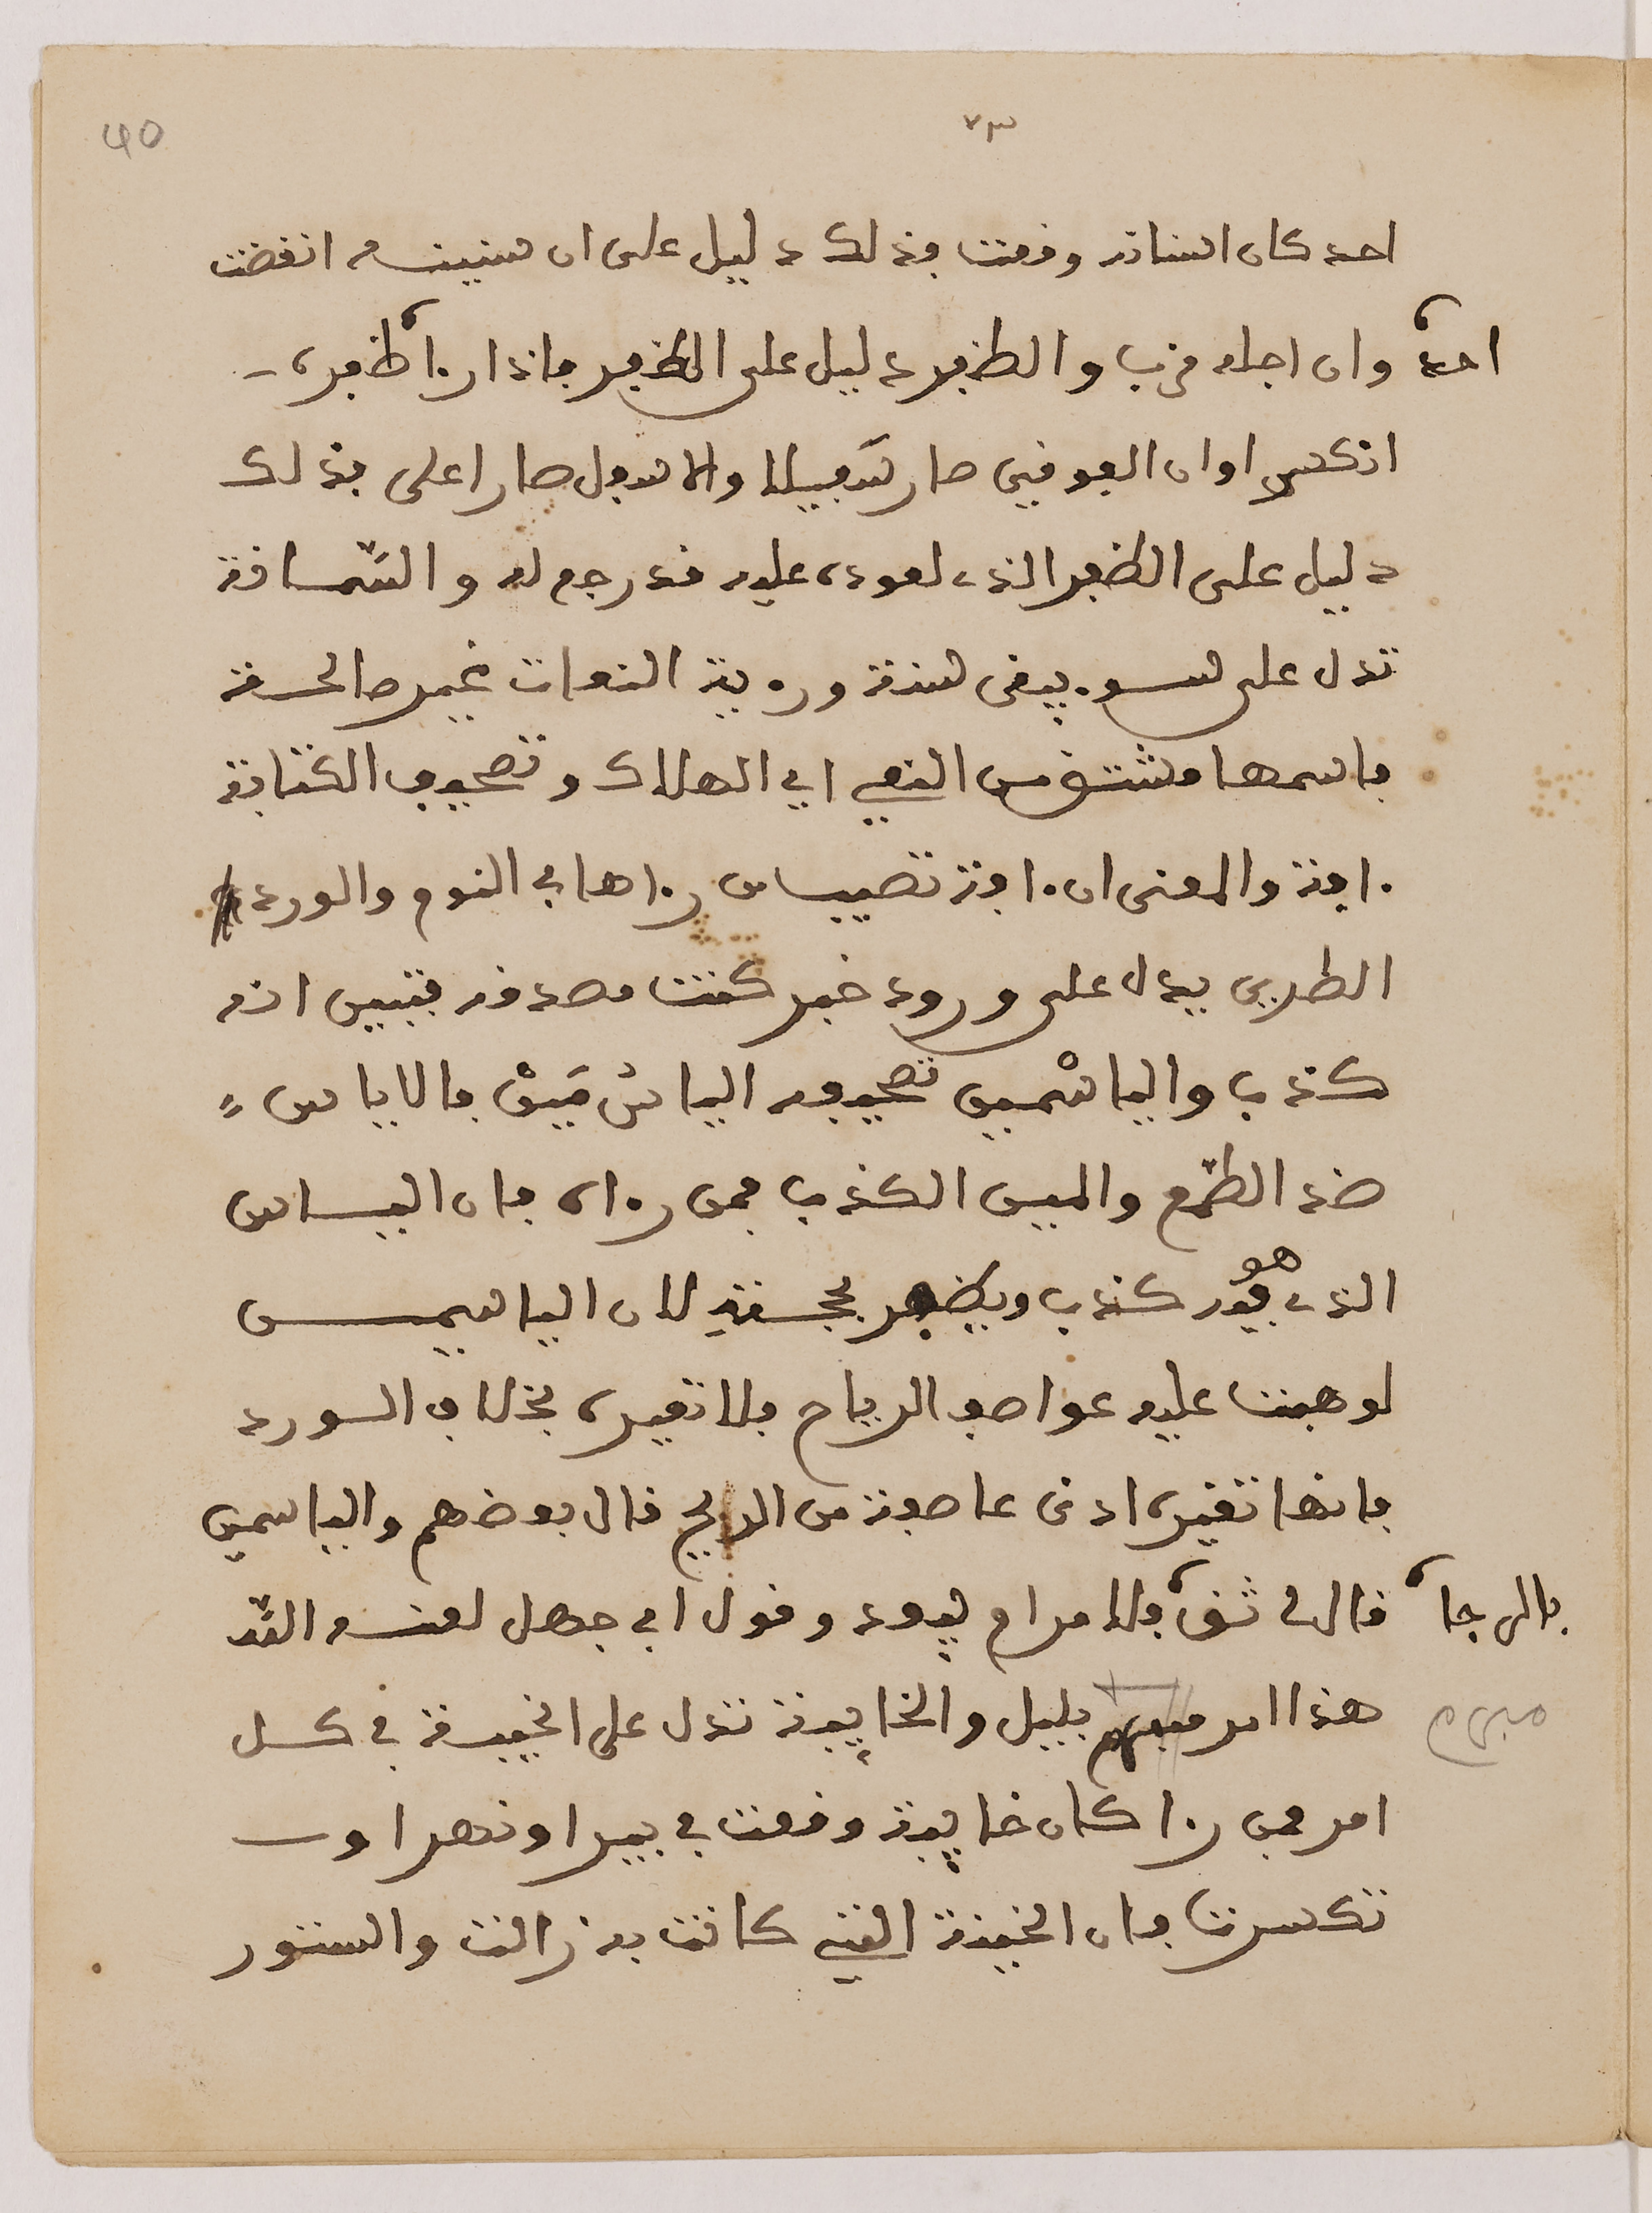 ٧٣
احد كان اسنانه وقعت فذلك دليل على ان سنينه انقضت
احد وان اجله قرب والظفر دليل على الظفر فاذا رءا ظفره
انكسر او ان الفوقي صار سفيلا والاسفل صار اعلى فذلك
دليل على الظفر الذي لعدوه عليه قد رجع له والسماقة
تدل على لسو يبقى لسنة ورءية النعات غير صالحة
فاسمها مشتق من النعي اي الهلاك وتصحيف الكتابة
ءافة والمعنى ان ءافة تصيب من رءاها في النوم والورد
الطري يدل على ورود خبر كنت مصدقه فتبين انه
كذب والياسمين تصحيفه الياس مين فالاياس
ضد الطمع والمين الكذب فمن رءاه فان الياس
الذي هو فيه كذب ويظفر بحجته لان الياسمين
لو هبت عليه عواصف الرياح فلا تغيره بخلاف الورد
فانها تغيره ادنى عاصفة من الريح قال بعضهم والياسمين
بالرجا قال لي ثق فالامرام بعد وقول ابي جهل لعنه الله
مبرم
هذا امر بليل والخابية تدل على الخيبة في كل
امر فمن رءا كان خابية وقعت في بير او نهر او
تكسرت فان الخيبة التي كانت به زالت والسنور